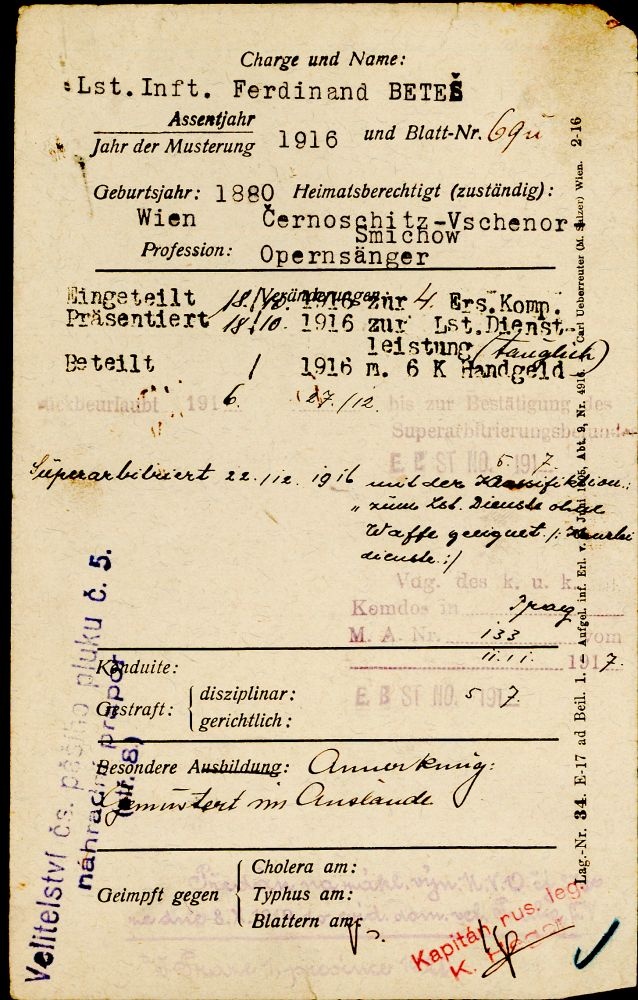 Charge und Name:
Lst. Inft. Ferdinand BETEŠ
Assentjahr
Jahr der Musterung 1916 und Blatt-Nr. 69
Geburtsjahr: 1880 Heimatsberechtigt (zuständig):
Wien Černoschitz-Vschenor
Smichow
Profession: Opernsänger
Veränderungen:
Eingeteilt 18./10. 1916 zur 4. Ers.Komp.
Präsentiert 18./10. 1916 zur Lst.Dienst-
leistung (tauglich)
Beteilt / 1916 m. 6 K Handgeld
ückbeurlaubt 1916. 27./12. bis zur Bestätigung des
Superarbitrierungsbefundes
E B ST NO. 5 1917
Superarbitriert 22./12. 1916 mit der Klassifiktion:
"zum Lst. Dienste ohne
Waffe geeignet /: Kanzlei
dienste :/
Vdg. des k. u. k.
Komdos in Prag
M. A. Nr. 133 vom
11.11. 1917.
Konduite:
E B ST NO. 5 1917
Gestraft: disziplinar:
gerichtlich:
Besondere Ausbildung: Anmerkung:
Gemustert im Auslande
Geimpft gegen
Cholera am:
Typhus am:
Blattern am:
Kapitán rus. leg.
K.
Velitelství čs. pěšího pluku č. 5.
náhradní prapor
Lag.-Nr. 34. E-17 ad Beil. 1. — Aufgel. inf. Erl. v. Juni 1915, Abt. 9, Nr. 4914. Carl Ueberreuter (M. Salzer) Wien. 2-16